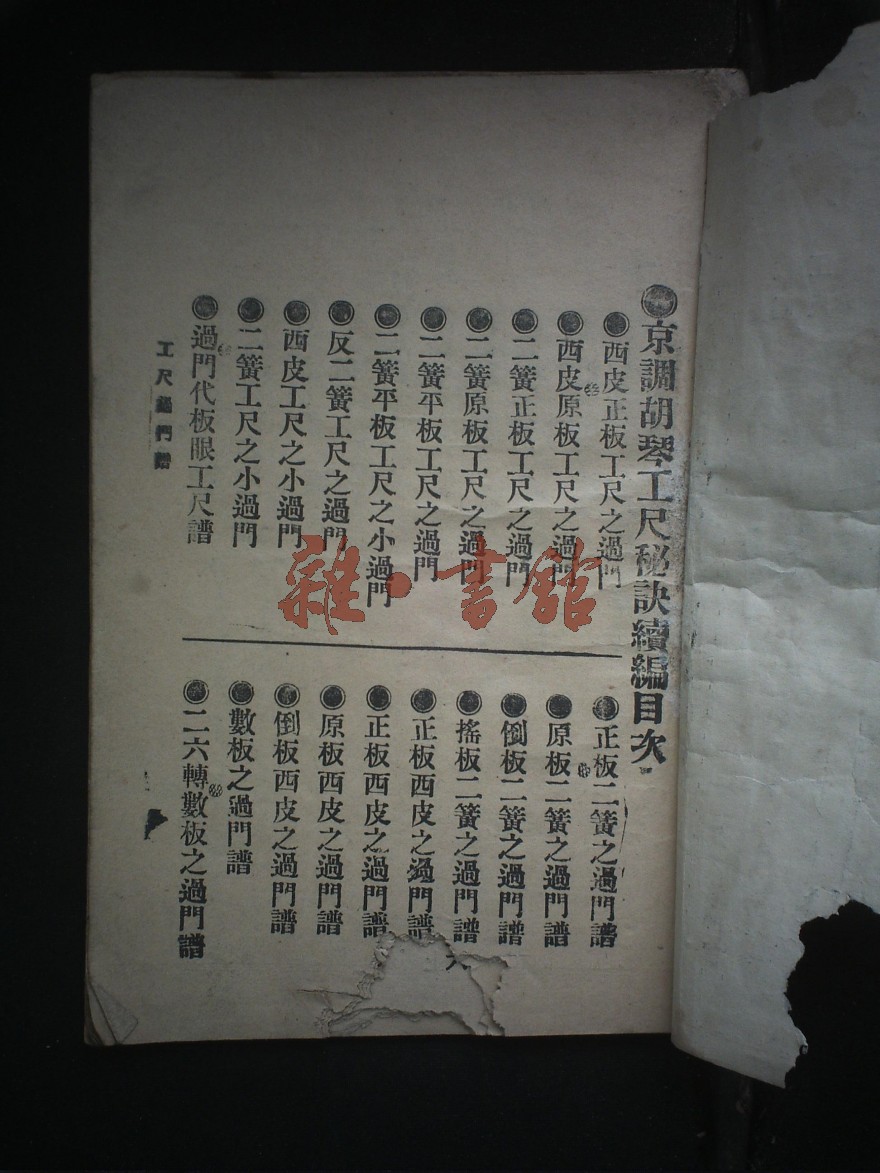 京調胡琴工尺秘訣續編目次
西皮正板工尺之過門
西皮原板工尺之過門
二簧正板工尺之過門
二簧原板工尺之過門
二簧平板工尺之過門
二簧平板工尺之小過門
反二簧工尺之過門
西皮工尺之小過門
二簧工尺之小過門
過門代板眼工尺譜
正板二簧之過門譜
原板二簧之過門譜
倒板二簧之過門譜
搖板二簧之過門譜
正板西皮之過門譜
正板西皮之過門譜
原板西皮之過門譜
倒板西皮之過門譜
數板之過門譜
二六轉數板之過門譜
工尺過門譜
雜·書館